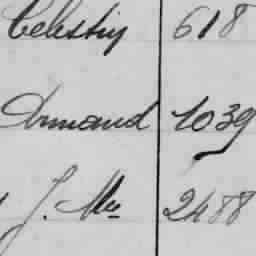 Celestin 618
Armand 1039
J. Mie 2488